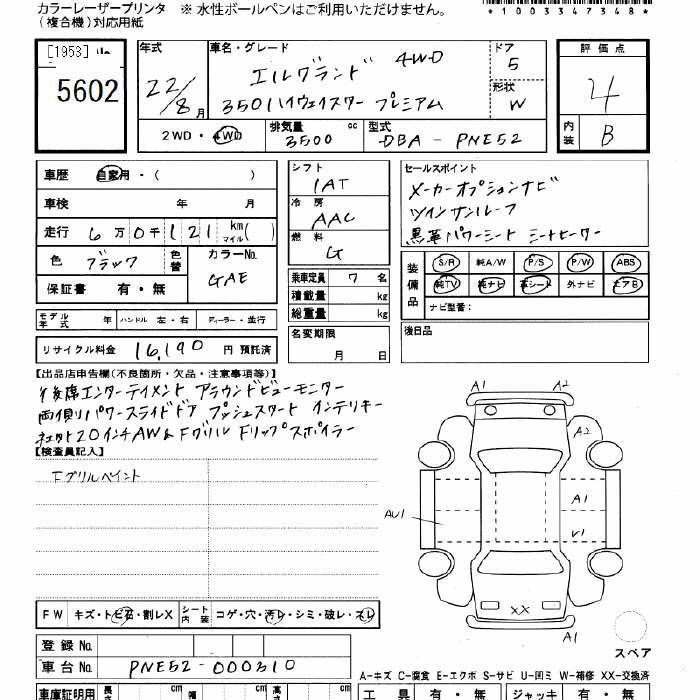 カラーレーザープリンタ ※ 水性ボールペンはご利用いただけません。
（複合機）対応用紙
*1003347348*
[1953]
5602
年式 22/8 月
車名・グレード エルグランド 4WD
350ハイウェイスター プレミアム
ドア 5
形状 W
2WD・4WD 排気量 3500 cc 型式 DBA-PNE52
評価点 4
内装 B
車歴 自家用・( )
車検 年 月
走行 6万0千121 km マイル( )
色 ブラック 色替 カラーNo. GAE
保証書 有・無
モデル年式 年 ハンドル 左・右 ディーラー・並行
リサイクル料金 16,190 円 預託済
シフト IAT
冷房 AAC
燃料 G
乗車定員 7 名
積載量 kg
総重量 kg
名変期限
月 日
セールスポイント
メーカーオプションナビ
ツインサンルーフ
黒革パワーシート シートヒーター
装備品 S/R 純A/W P/S P/W ABS
純TV 純ナビ 革シート 外ナビ エアB
ナビ型番：
後日品
【出品店申告欄(不良箇所・欠品・注意事項等)】
後席エンターテイメント アラウンドビューモニター
両側パワースライドドア プッシュスタート インテリキー
20インチAW&Fグリル Fリップスポイラー
【検査員記入】
Fグリルペイント
A1 A2
A2
A1
AU1
V1
XX
A1
スペア
FW キズ・トビ石・割レX シート内装 コゲ・穴・汚レ・シミ・破レ・スレ
登録No.
車台No. PNE52-000310
A-キズ C-腐食 E-エクボ S-サビ U-凹ミ W-補修 XX-交換済
車庫証明用 長さ cm 幅 cm 高さ cm 工具 有・無 ジャッキ 有・無